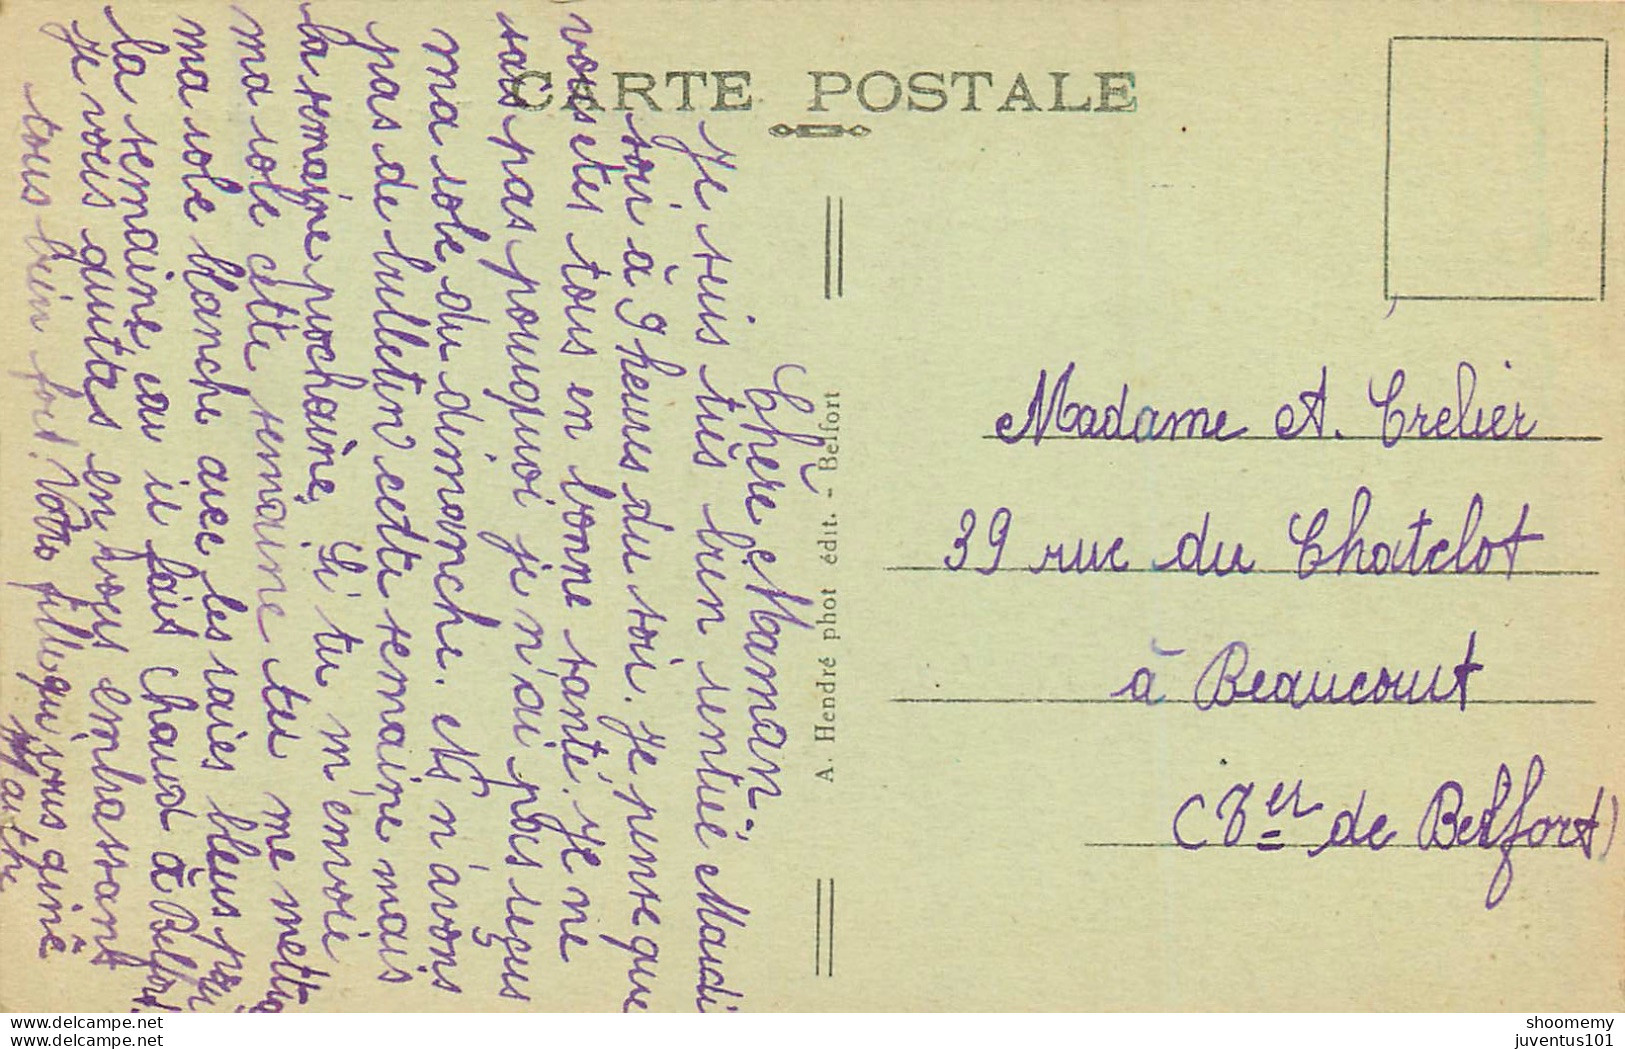 CARTE POSTALE
Chère Maman.
Je suis très bien rentrée Mardi
soir à 9 heures du soir. Je pense que
vous etes tous en bonne santé. Je ne
sais pas pouquoi je n'ai pas reçus
ma robe du dimanche. et n'avons
pas de bulletin cette semaine mais
la semaine prochaine. Si tu m'envoie
ma robe cette semaine tu me mettra
ma robe blanche avec les raies bleus pour
la semaine car il fais chaud à Belfort
je vous quittes en vous embrassant
tous bien fort. Votre fille qui vous aime
A. Hendré phot édit. - Belfort
Madame A. Crelier
39 rue du Chatelot
à Beaucourt
(Ter de Belfort)
https://www.delcampe.net/
https://www.delcampe.net/
shoomemy
juventus101